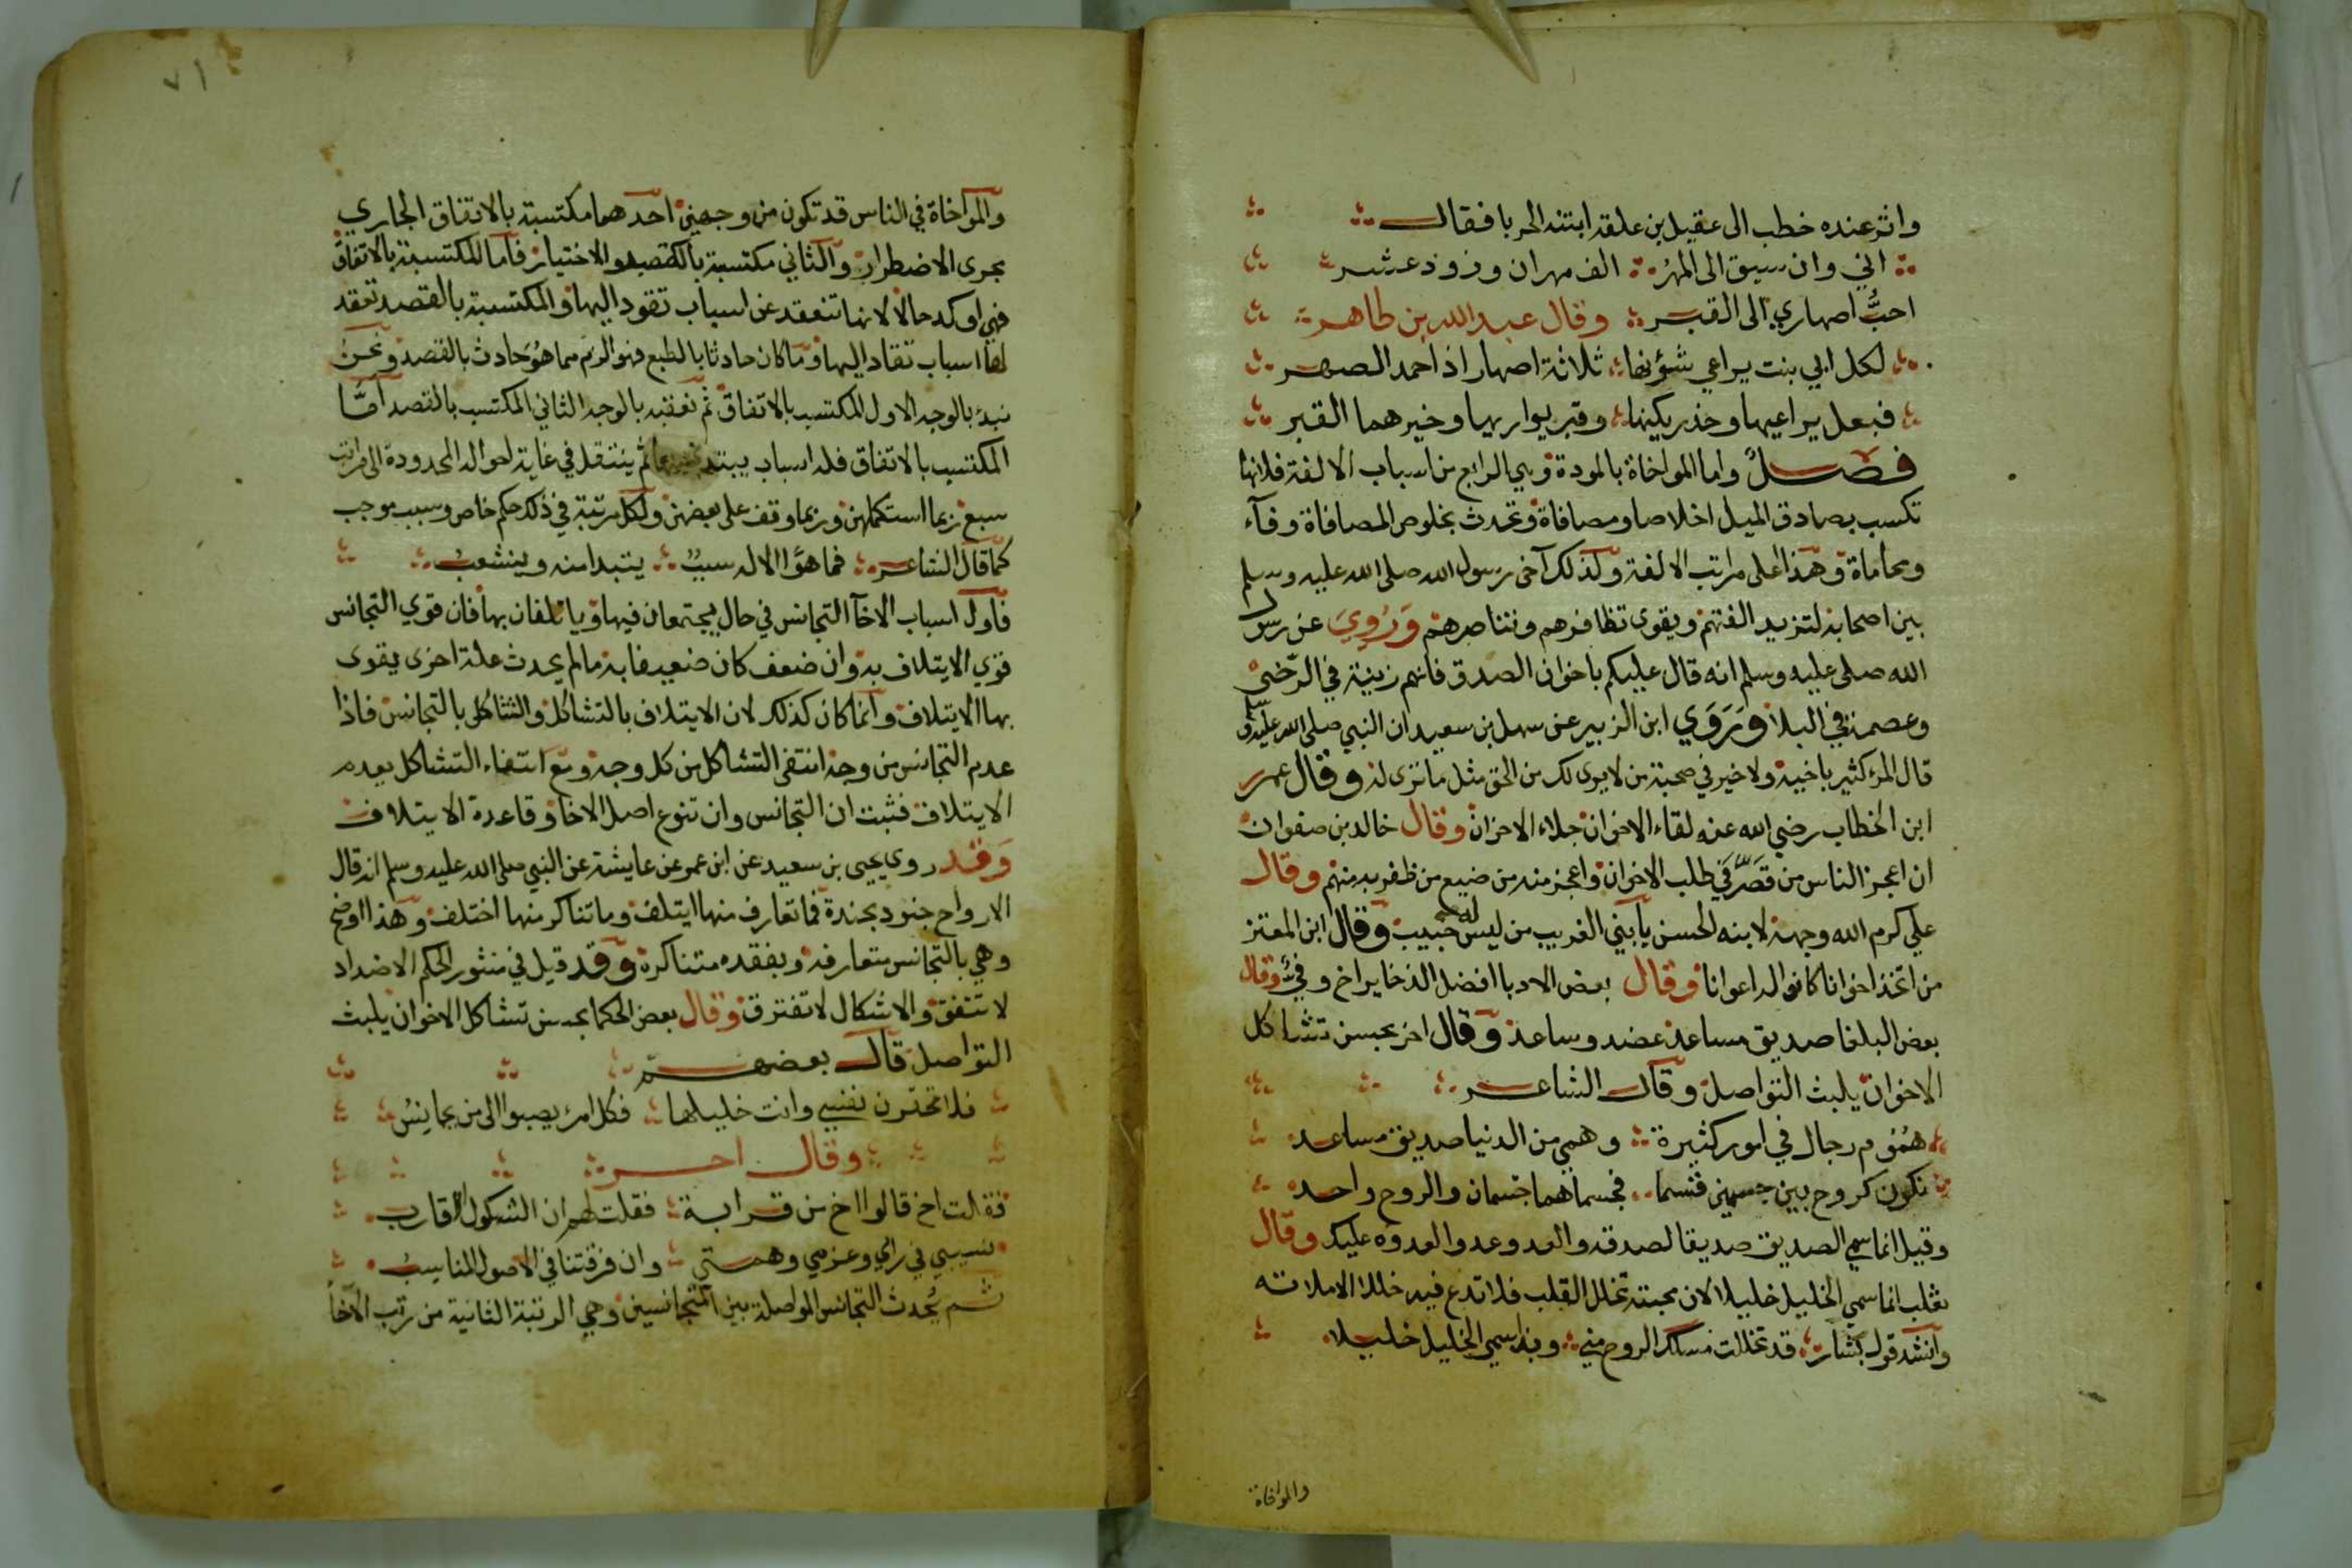 واثر عنده خطب الى عقيل بن علقه ابنته الحربا فقال
اني وان سيق الى المهر الف مهران وزود عشر
احبُّ اصهاري الى القبر وقال عبد الله بن طاهر
لكل ابي بنت يراعي شؤنها ثلاثة اصهار اذا حمد الصهر
فبعل يراعيها وخذر يكنها وقبر يواريها وخيرهما القبر
فصلٌ واما المواخاة بالمودة وهي الرابع من اسباب الالفة فلانها
تكسب بصادق الميل اخلاصا ومصافاة وتحدث بخلوص المصافاة وفآء
ومحاماة وهذا اعلى مراتب الالفة وكذلك آخى رسول الله صلى الله عليه وسلم
بين اصحابه لتزيد الفتهم ويقوى تظافرهم وتناصرهم وَرُوِيَ عن رسول
الله صلى عليه وسلم انه قال عليكم باخوان الصدق فانهم زينة في الرخى
وعصمة في البلا وَرَوَي ابن الزبير عن سهل بن سعيد ان النبي صلى الله عليه وسلم
قال المرء كثير باخيه ولا خير في صحبة من لا يرى لك من الحق مثل ما ترى له وقال عمر
ابن الخطاب رضي الله عنه لقاء الاخوان جلاء الاحزان وقال خالد بن صفوان
ان اعجز الناس من قَصَّرَ في طلب الاخوان واعجز منه من ضيع من ظفر به منهم وقال
علي كرم الله وجهه لابنه الحسن يا بني الغريب من ليس له حبيب وقال ابن المعتز
من اتخذ اخوانا كانوا له اعوانا وقال بعض الادبا افضل الذخاير اخ وفيٌّ وقال
بعض البلغا صديق مساعد عضد وساعد وقال اخر بحسن تشاكل
الاخوان يلبث التواصل وقال الشاعر
همُوم رجال في امور كثيرة وهمي من الدنيا صديق مساعد
نكون كروح بين جسمين قسما فجسماهما جسمان والروح واحد
وقيل انما سمي الصديق صديقا لصدقه والعدو عدوا لعدوه عليك وقال
ثعلب انما سمي الخليل خليلا لان محبته تخلل القلب فلا تدع فيه خللا الا ملاته
وانشد قول بشار قد تخللت مسلك الروح مني وبه سمي الخليل خليلا
والمواخاة
٧١
والمواخاة في الناس قد تكون من وجهين احدهما مكتسبة بالاتفاق الجاري
مجرى الاضطرار والثاني مكتسبة بالقصد والاختيار فاما المكتسبة بالاتفاق
فهي اوكد حالا لانها تنعقد عن اسباب تقود اليها والمكتسبة بالقصد تعقد
لها اسباب تقاد اليها وما كان حادثا بالطبع فهو الزم مما هو حادث بالقصد ونحن
نبدُ بالوجه الاول المكتسب بالاتفاق ثم نعقبه بالوجه الثاني المكتسب بالقصد اما
المكتسب بالاتفاق فله اسباب يبتدى ثم ينتقل في غاية احواله المحدودة الى مراتب
سبع ربما استكملهن وربما وقف على بعضهن ولكل مرتبة في ذلك حكم خاص وسبب موجب
كما قال الشاعر فما هوًا الا له سببٌ يبتدا منه وينشعبُ
فاول اسباب الاخآ التجانس في حال يجتمعان فيها وياتلفان بها فان قوي التجانس
قوي الايتلاف به وان ضعف كان ضعيفا به ما لم يحدث علة اخرى يقوى
بها الايتلاف وانما كان كذلك لان الايتلاف بالتشاكل والتشاكل بالتجانس فاذا
عدم التجانس من وجه انتفى التشاكل من كل وجه ومع انتفاء التشاكل يعدم
الايتلاف فثبت ان التجانس وان تنوع اصل الاخا وقاعدة الايتلاف
وَقد روى يحيى بن سعيد عن ابن عمر عن عايشة عن النبي صلى الله عليه وسلم انه قال
الارواح جنود مجندة فما تعارف منها ايتلف وما تناكر منها اختلف وهذا اوضح
وهي بالتجانس متعارفة وبفقده متناكرة وقد قيل في منثور الحكم الاضداد
لا تتفق والاشكال لا تفترق وقال بعض الحكما بحسن تشاكل الاخوان يلبث
التواصل قال بعضهم
فلا تحتقرن نفسي وانت خليلها فكل امرء يصبوا الى من يجانسُ
وقال اخر
فقلت اخ قالوا اخ من قرابة فقلت لهم ان الشكول اقارب
نسيبي في رايي وعزمي وهمتي وان فرقتنا في الاصول المناسبُ
ثم يُحدث التجانس المواصلة بين المتجانسين وهي الرتبة الثانية من رتب الآخاً